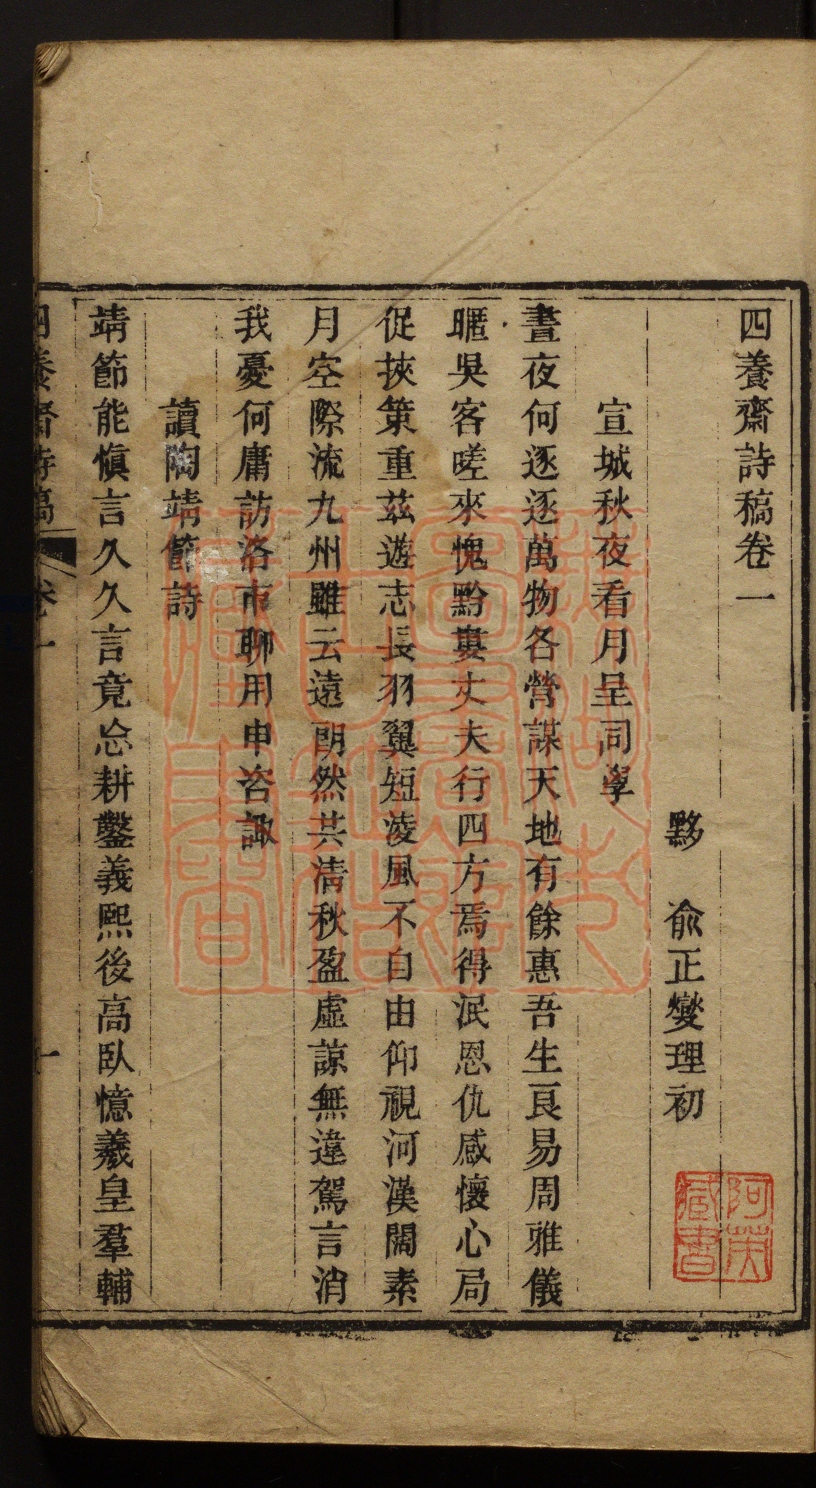 四養齋詩稿卷一
黟　俞正燮理初
宣城秋夜看月呈同學
晝夜何逐逐萬物各營謀天地有餘惠吾生良易周雅儀
暱吳客嗟來愧黔婁丈夫行四方焉得泯恩仇感懷心局
促挾策重茲遊志長羽翼短淩風不自由仰視河漢闊素
月空際流九州雖云遠朗然共清秋盈虛諒無違駕言消
我憂何庸訪洛市聊用申咨諏
讀陶靖節詩
靖節能愼言久久言竟忩耕鑿義熙後高臥憶羲皇羣輔
四養齋詩稿　卷一　一
阿英藏書